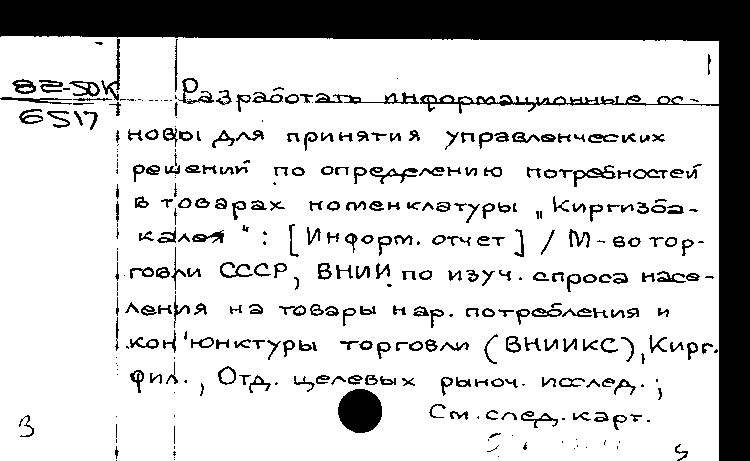 82-50К
6517
Разработать информационные ос-
новы для принятия управленческих
решений по определению потребностей
в товарах номенклатуры „Киргизба-
калея“: [Информ. отчет] / М-во тор-
говли СССР, ВНИИ по изуч. спроса насе-
ления на товары нар. потребления и
кон'юнктуры торговли (ВНИИКС), Кирг.
фил., Отд. целевых рыноч. исслед.;
См. след. карт.
3